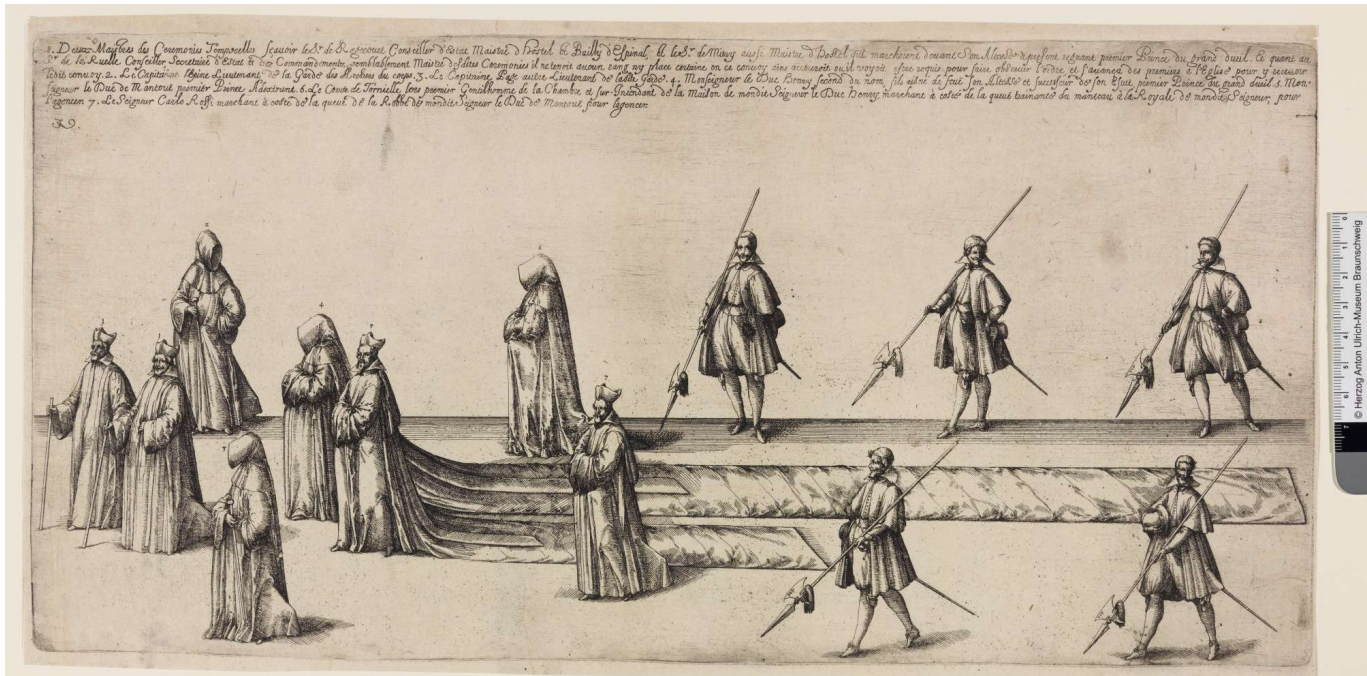 1. Deux Maistres des Ceremonies Temporelles sçavoir le Sr. de Conseiller d'Estat Maistre d'hostel et Bailly d'Espinal, et le Sr. de aussi Maistre d'hostel marchoient devant Son Altesse regnant premier Prince du grand dueil. Et quant au
Sr. de la Ruelle Conseiller Secretaire d'Estat et des Commandements, semblablement Maistre desdites Ceremonies il ne tenoit aucun rang ny place certaine en ce convoy ains où il voyoit estre requis pour faire observer l'ordre et s'avança des premiers à l'Eglise pour y recevoir
ledit convoy. 2. Le Capitaine Lieutenant de la Garde des Archers du corps. 3. Le Capitaine autre Lieutenant de Garde. 4. Monseigneur le Duc Henry second du nom, fils aisné de Son Altesse et successeur de son Estat premier Prince du grand dueil 5. Mon-
seigneur le Duc de Mantoue premier Prince 6. Le Conte de Tornielle lors premier Gentilhomme de la Chambre et Sur-Intendant de la Maison de mondit Seigneur le Duc Henry, marchant à costé de la queue trainante du manteau à la Royale de mondit Seigneur, pour
l'agencer 7. Le Seigneur Carlo Rossi marchant à costé de la queue de la Robbe de mondit Seigneur le Duc de Mantoue pour l'agencer.
39.
© Herzog Anton Ulrich-Museum Braunschweig